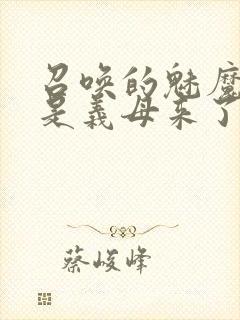 召唤的魅魔
是义母来了
蔡峻峰